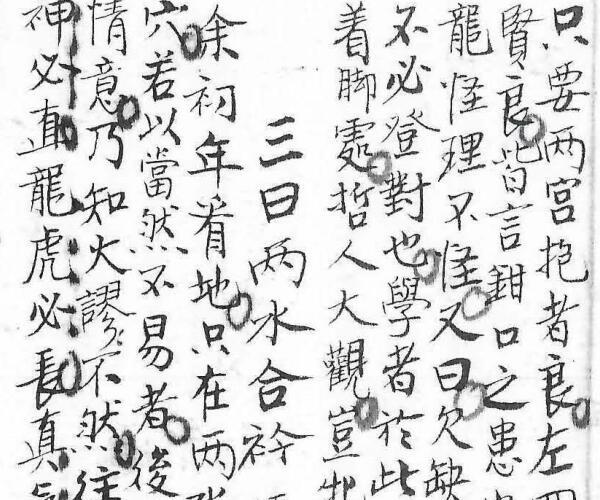 只要两宫抱者良左
賢良皆言鉗口之患
龍怪理不怪又曰欠缺
不必登對也學者於此
着脚處哲人大觀豈
三曰两水合衿
余初年看地只在两
穴若以當然不易者後
情意乃知大謬不然往
神必直龍虎必長真氣